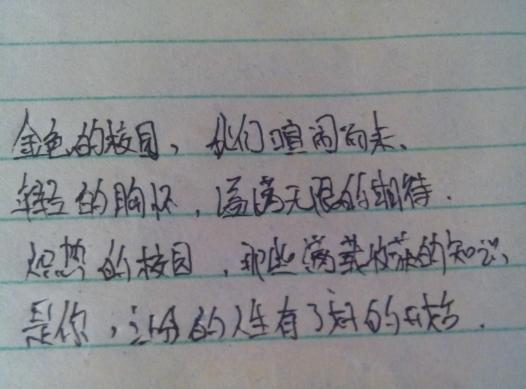 金色的校园，我们喧闹而来、
年轻的胸怀，溢满无限的期待．
炽热的校园，那些满载收获的知识，
是你，让我的人生有了新的开始．